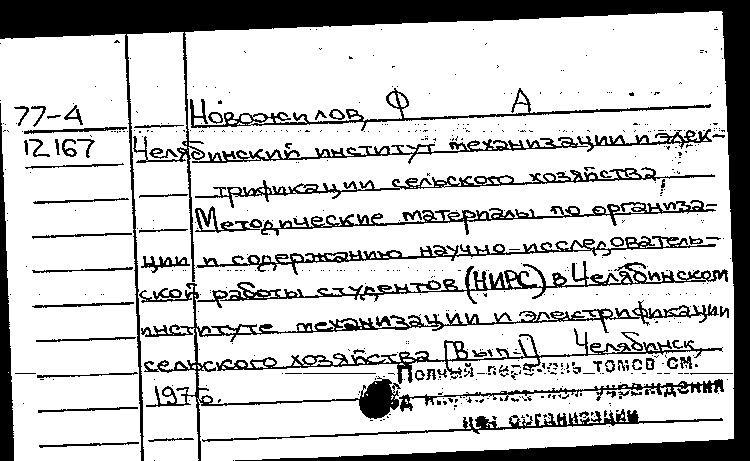 77-4
12167
Новожилов, Ф А
Челябинский институт механизации и элек-
трификации сельского хозяйства
Методические материалы по организа-
ции и содержанию научно-исследователь-
ской работы студентов (НИРС) в Челябинском
институте механизации и электрификации
сельского хозяйства [Вып. 1] Челябинск,
1976.
Полный перечень томов см.
учреждения
или организации